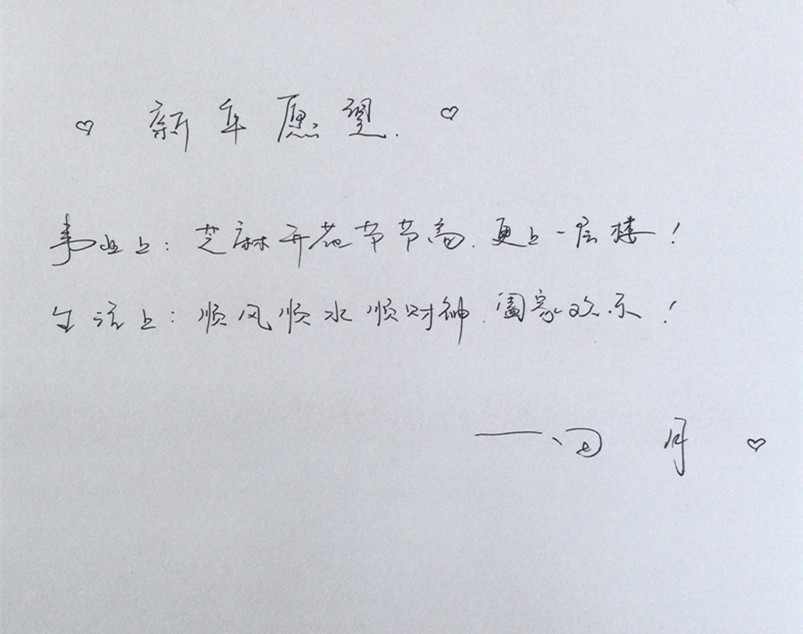 ♡ 新年愿望. ♡
事业上：芝麻开花节节高.更上一层楼！
生活上：顺风顺水顺财神.阖家欢乐！
月 ♡